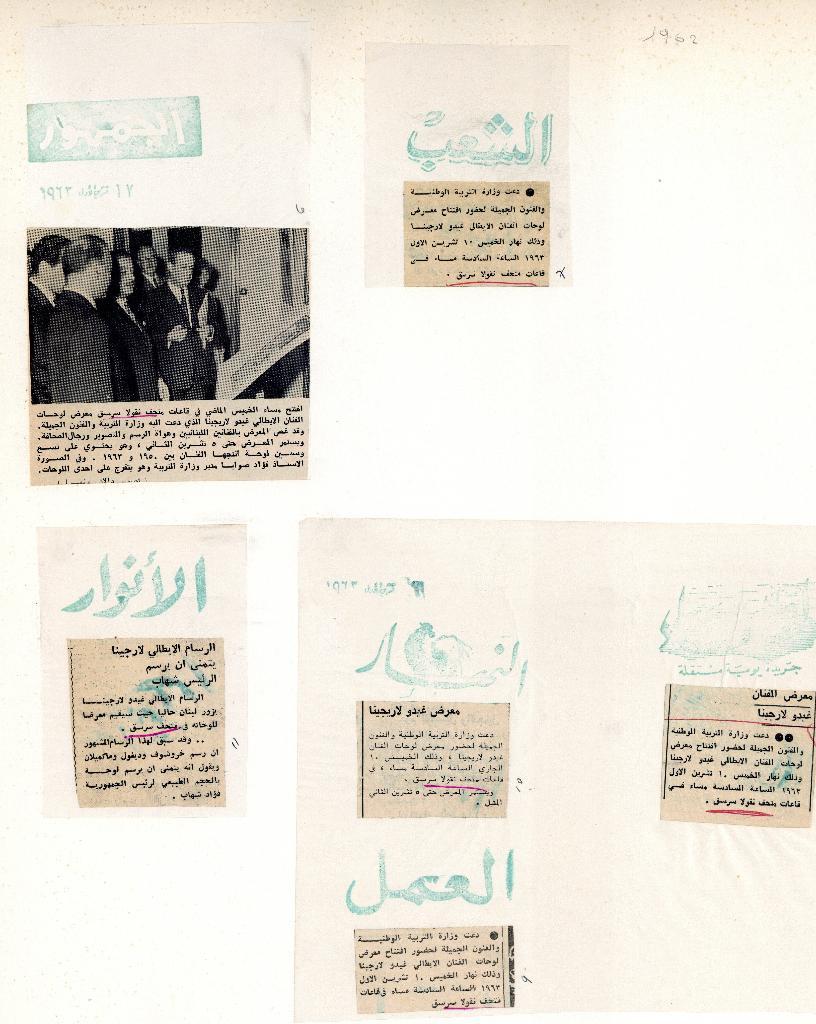 1962
الجمهور
١٧ تشرين الاول ١٩٦٣
افتتح مساء الخميس الماضي في قاعات متحف نقولا سرسق معرض لوحات
الفنان الايطالي غيدو لاريجينا الذي دعت اليه وزارة التربية والفنون الجميلة.
وقد غص المعرض بالفنانين اللبنانيين وهواة الرسم والتصوير ورجال الصحافة.
ويستمر المعرض حتى ٥ تشرين الثاني ، وهو يحتوي على تسع
وستين لوحة انتجها الفنان بين ١٩٥٠ و ١٩٦٣ . وفي الصورة
الاستاذ فؤاد صوايا مدير وزارة التربية وهو يتفرج على احدى اللوحات.
الشعب
● دعت وزارة التربية الوطنيـــة
والفنون الجميلة لحضور افتتاح معـرض
لوحات الفنان الايطالي غيدو لارجينـا
وذلك نهار الخميس ١٠ تشريـن الاول
١٩٦٣ الساعة السادسة مسـاء فـي
قاعات متحف نقولا سرسق .
الأنوار
الرسام الايطالي لارجينا
يتمنى ان يرسم
الرئيس شهاب
الرسام الايطالي غيدو لارجينـــا
يزور لبنان حاليا حيث سيقيم معرضا
للوحاته في متحف سرسق .
.. وقد سبق لهذا الرسام المشهور
ان رسم خروشوف وديغول وماكميلان
ويقول انه يتمنى ان يرسم لوحـــة
بالحجم الطبيعي لرئيس الجمهورية
فؤاد شهاب .
١١
١٩٦٣
النهار
معرض غيدو لاريجينا
دعت وزارة التربية الوطنية والفنون
الجميلة لحضور معرض لوحات الفنان
غيدو لاريجينا ، وذلك الخميـس ١٠
الجاري الساعة السادسة مساء ، في
قاعات متحف نقولا سرسق .
ويستمر المعرض حتى ٥ تشرين الثاني
المقبل .
جريدة يوميّة مستقلة
معرض الفنان
غيدو لارجينا
●● دعت وزارة التربية الوطنية
والفنون الجميلة لحضور افتتاح معرض
لوحات الفنان الايطالي غيدو لارجينا
وذلك نهار الخميس ١٠ تشرين الاول
١٩٦٣ الساعة السادسة مساء فـي
قاعات متحف نقولا سرسق .
العمل
● دعت وزارة التربية الوطنيـــة
والفنون الجميلة لحضور افتتاح معرض
لوحات الفنان الايطالي غيدو لارجينا
وذلك نهار الخميس ١٠ تشرين الاول
١٩٦٣ الساعة السادسة مساء في قاعات
متحف نقولا سرسق